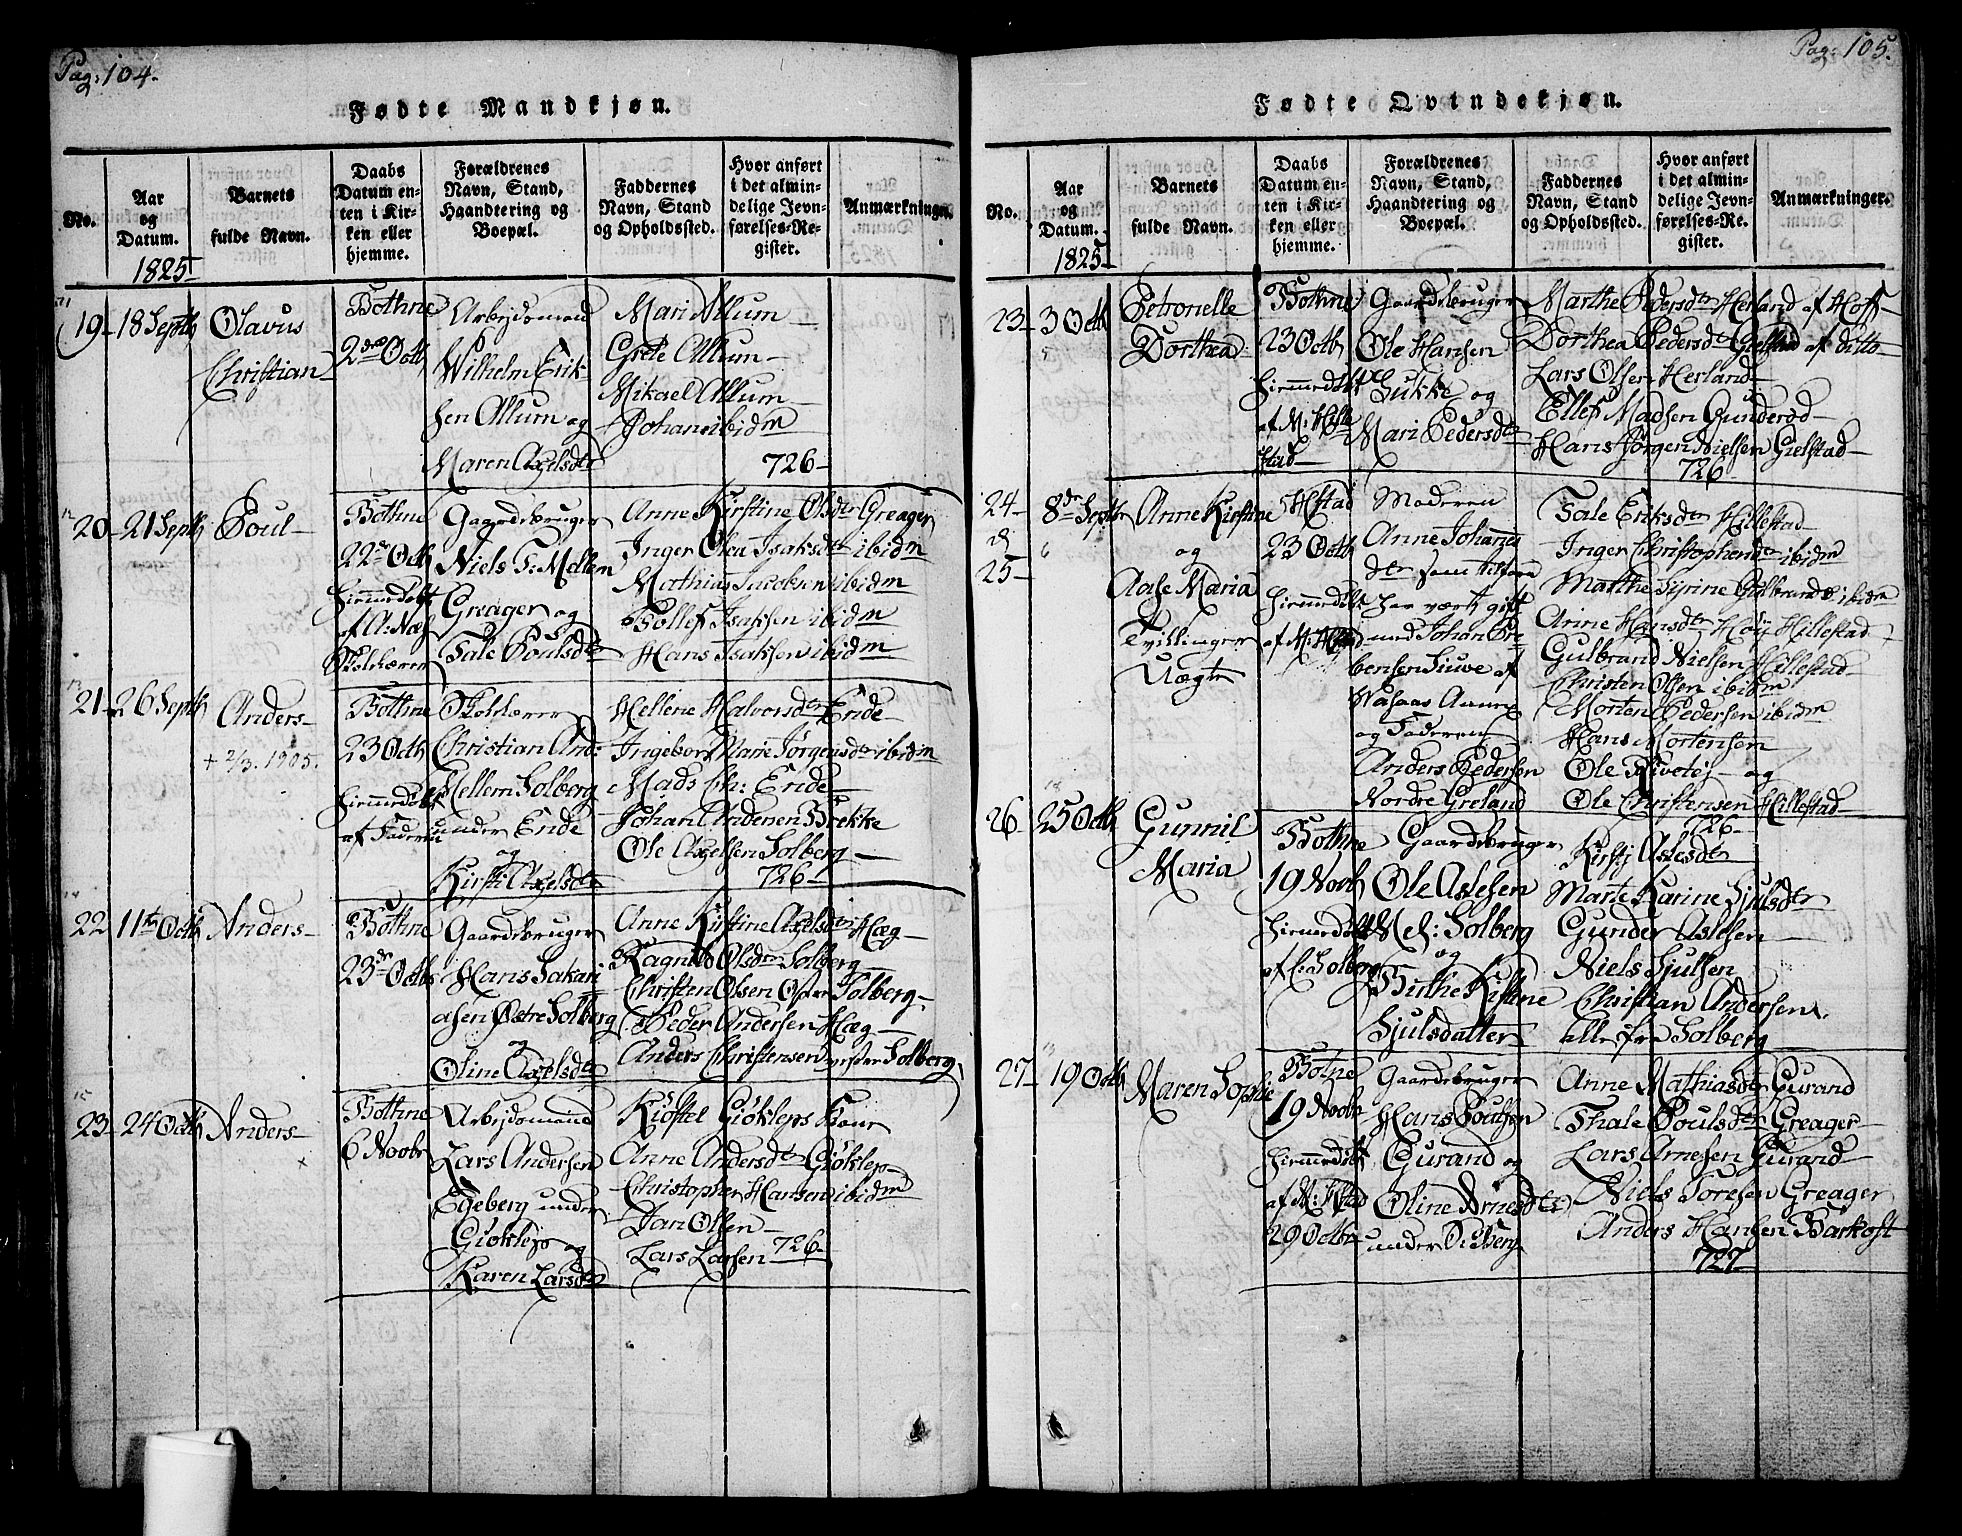 Pag: 104.
Fødte Mandkjøn.
No.
Aar og Datum.
1825
Barnets fulde Navn.
Daabs Datum enten i Kirken eller hjemme.
Forældrenes Navn, Stand, Haandtering og Boepæl.
Faddernes Navn, Stand og Opholdssted.
Hvor anført i det almindelige Jevnførelses-Register.
Anmærkninger.
19 18 Septb
Olavus
Christian
Bothne
2den Octb
Arbejdsmand
Wilhelm Erik-
sen Allum og
Maren Axelsdtr
Mari Allum
Grete Allum
Mikael Allum
Johans ibidm
726
20 21 Septb
Poul
Bothne
22de Octb
Hiemmedøbt
af A: Næs
Skolelærer
Gaardebruger
Niels T: Mellem
Greager og
Tale Poulsdtr
Anne Kirstine Olsdtr Greager
Inger Olea Isaksdtr ibidm
Mathias Jacobsen ibidm
Tollef Isaksen ibidm
Hans Isaksen ibidm
21 26 Septb
Anders
+ 2/3. 1905.
Bothne
23 Octb
Hiemmedøbt
af Faderen
Skolelærer
Christian And:
Mellem Solberg
under Ende
og
Kirsti Axelsdtr
Hellene Halvorsdtr Ende
Ingebor Marie Jørgensdtr ibidm
Mads Ch: Ende
Johan Andersen Brekke
Ole Axelsen Solberg
726
22 11te Octb
Anders
Bothne
23de Octb
Gaardebruger
Hans Sakari-
asen Østre Solberg
og
Oline Axelsdtr
Anne Kirstine Axelsdtr Hæg
Ragnild Olsdtr Solberg
Christen Olsen Østre Solberg
Peder Andersen Hæg
Anders Christensen vester Solberg
23 24 Octb
Anders
Bothne
6 Novbr
Arbejdsmand
Lars Andersen
Egeberg under
Giøklep og
Karen Larsdtr
Kiøstel Giøkleps Kone
Anne Andersdtr Giøklep
Christopher Hansen ibidm
Jan Olsen
Lars Larsen 726
Pag: 105.
Fødte Qvindekjøn.
No.
Aar og Datum.
1825
Barnets fulde Navn.
Daabs Datum enten i Kirken eller hjemme.
Forældrenes Navn, Stand, Haandtering og Boepæl.
Faddernes Navn, Stand og Opholdssted.
Hvor anført i det almindelige Jevnførelses-Register.
Anmærkninger.
23 3 Octb
Petronelle
Dorthea
Bothne
23 Octb
Hiemmedøbt
af M: Hille
stad
Gaardebruger
Ole Hansen
Lukke og
Mari Pedersdtr
Marthe Pedersdtr Herland af Hoff
Dorthea Pedersdtr af ditto
Lars Olsen Herland
Ellef Madsen Gunderød
Hans Jørgen Nielsen Gielstad
726
24
&
25
8de Septbr
Anne Kirstine
og
Aase Maria
Tvillinger
Uægte
Hstad
23 Octb
Hiemmedøbt
Moderen
Anne Johannes
dtr som tilforn
har vært gift
med Johan
af
Anners
og Faderen
Anders Pedersen
Nordre Greland
Tale Eriksdtr Hillestad
Inger Christophersdtr ibidm
Marthe Syrine Gulbrands ibidm
Anne Hansdtr Høy Hillestad
Gulbrand Nielsen Hillestad
Christen Olsen ibidm
Morten Pedersen ibidm
Hans Mortensen
Ole og
Ole Christensen Hillestad
726
26 25 Octb
Gunnil
Maria
Bothne
19 Novb
Hiemmedøbt
af C: Solberg
Gaardebruger
Ole Aslesen
Mel: Solberg
og
Birthe Kistine
Sjulsdatter
Kirsty Aslesdtr
Marte Karine Sjulsdtr
Gunder Aslesen
Niels Sjulsen
Christian Andersen
alle fra Solberg
27 19 Octb
Maren Sophie
Botne
19 Novbr
Hiemmedøbt
af N: Hstad
29 Octbr
Gaardebruger
Hans Poulsen
Gurand og
Oline Arnesdtr
under
Anne Mathiasdtr Gurand
Thale Poulsdtr Greager
Lars Arnesen Gurand
Niels Toresen Greager
Anders Hansen Barkost
727